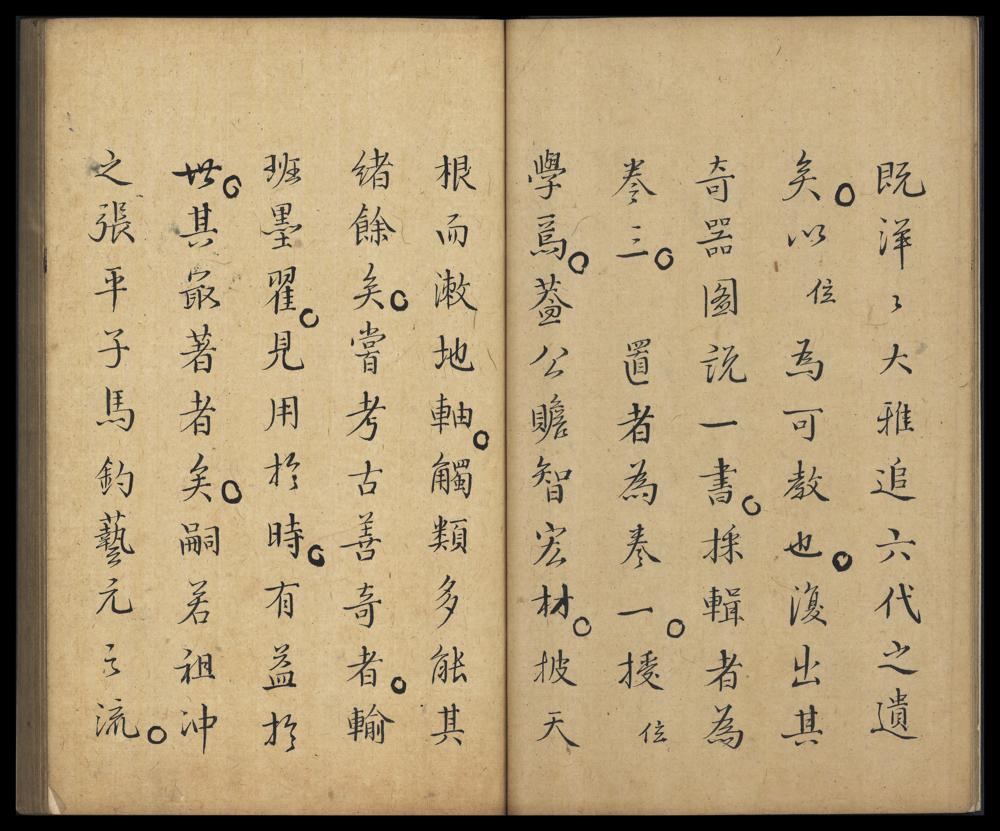 既洋〻大雅追六代之遺
矣。以位為可教也。復出其
奇器圖說一書。採輯者為
卷三。置者為卷一。授位
學焉。蓋公贍智宏材。披天
根而漱地軸。觸類多能其
緒餘矣。嘗考古善奇者。輸
班墨翟。見用於時。有益於
世。其最著者矣。嗣若祖冲
之張平子馬鈞藝元之流。